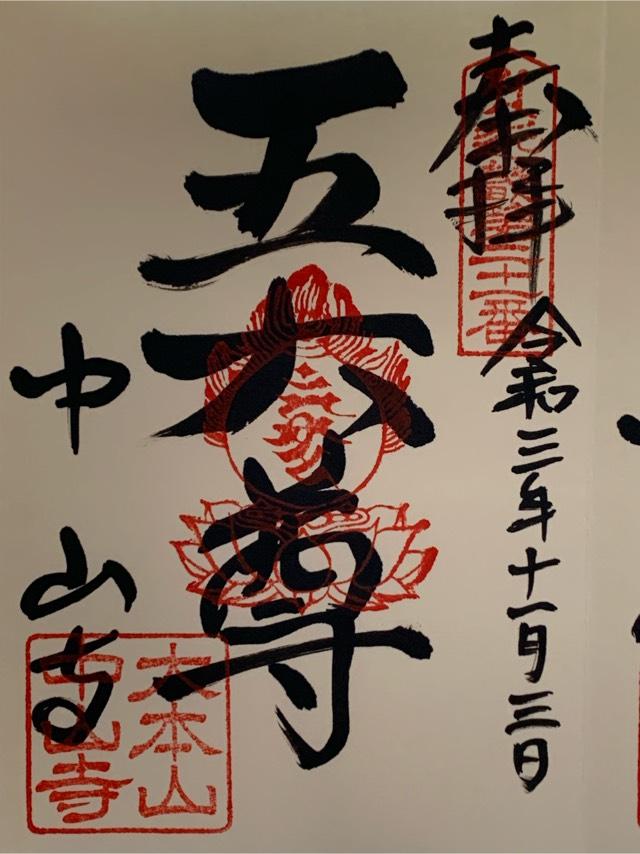 奉拝
二十一番
令和三年十一月三日
五大尊
中山寺
大本山
中山寺